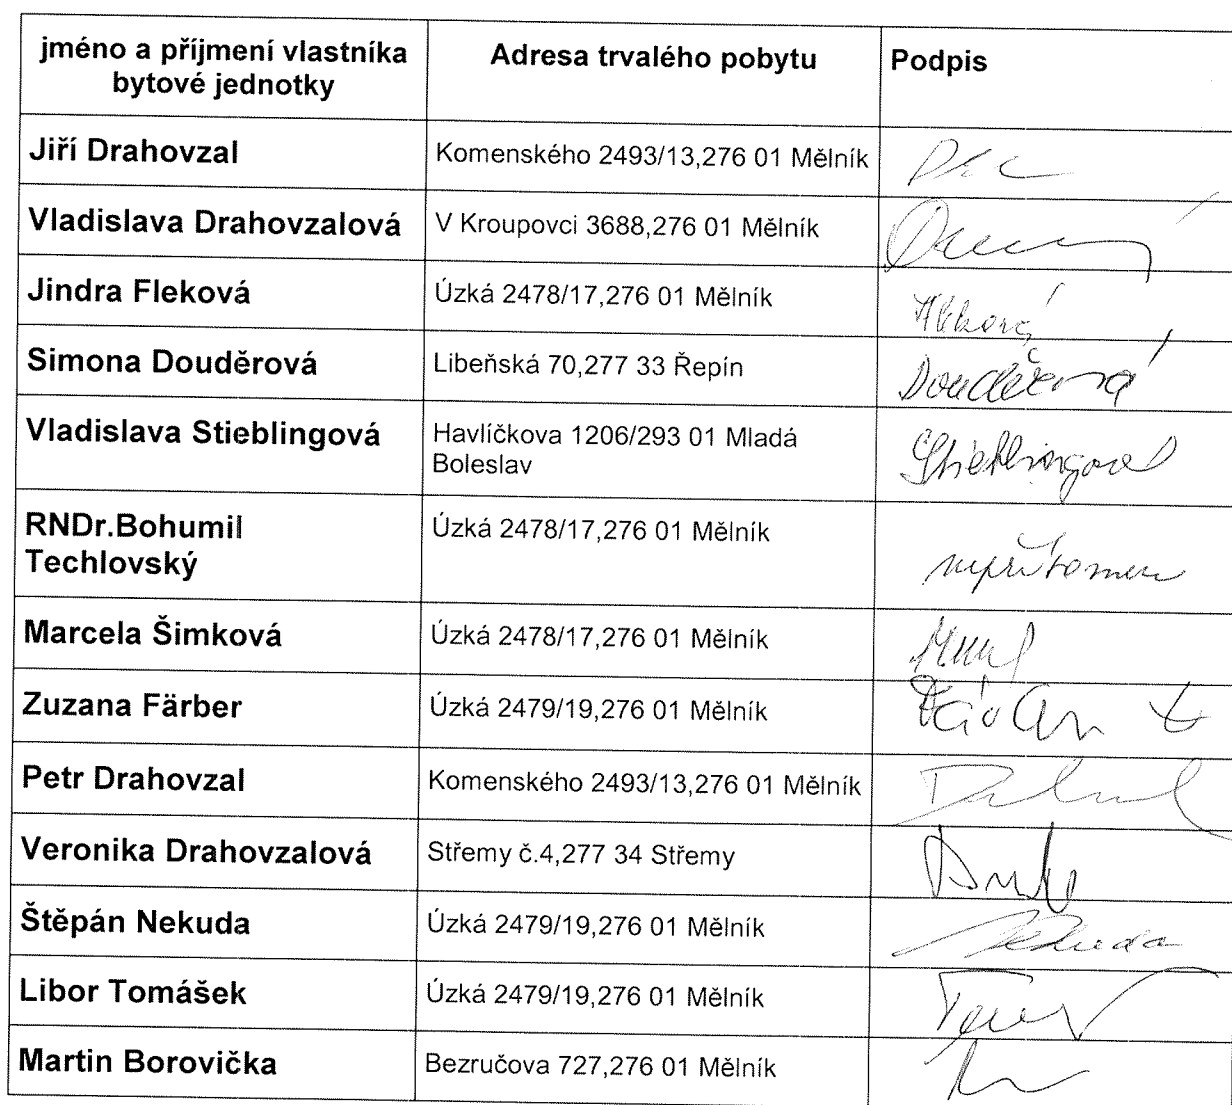 jméno a příjmení vlastníka
bytové jednotky
Adresa trvalého pobytu
Podpis
Jiří Drahovzal
Komenského 2493/13,276 01 Mělník
Vladislava Drahovzalová
V Kroupovci 3688,276 01 Mělník
Jindra Fleková
Úzká 2478/17,276 01 Mělník
Fleková
Simona Douděrová
Libeňská 70,277 33 Řepín
Douděrová
Vladislava Stieblingová
Havlíčkova 1206/293 01 Mladá
Boleslav
Stieblingová
RNDr.Bohumil
Techlovský
Úzká 2478/17,276 01 Mělník
nepřítomen
Marcela Šimková
Úzká 2478/17,276 01 Mělník
Zuzana Färber
Úzká 2479/19,276 01 Mělník
Petr Drahovzal
Komenského 2493/13,276 01 Mělník
Veronika Drahovzalová
Střemy č.4,277 34 Střemy
Štěpán Nekuda
Úzká 2479/19,276 01 Mělník
Nekuda
Libor Tomášek
Úzká 2479/19,276 01 Mělník
Martin Borovička
Bezručova 727,276 01 Mělník